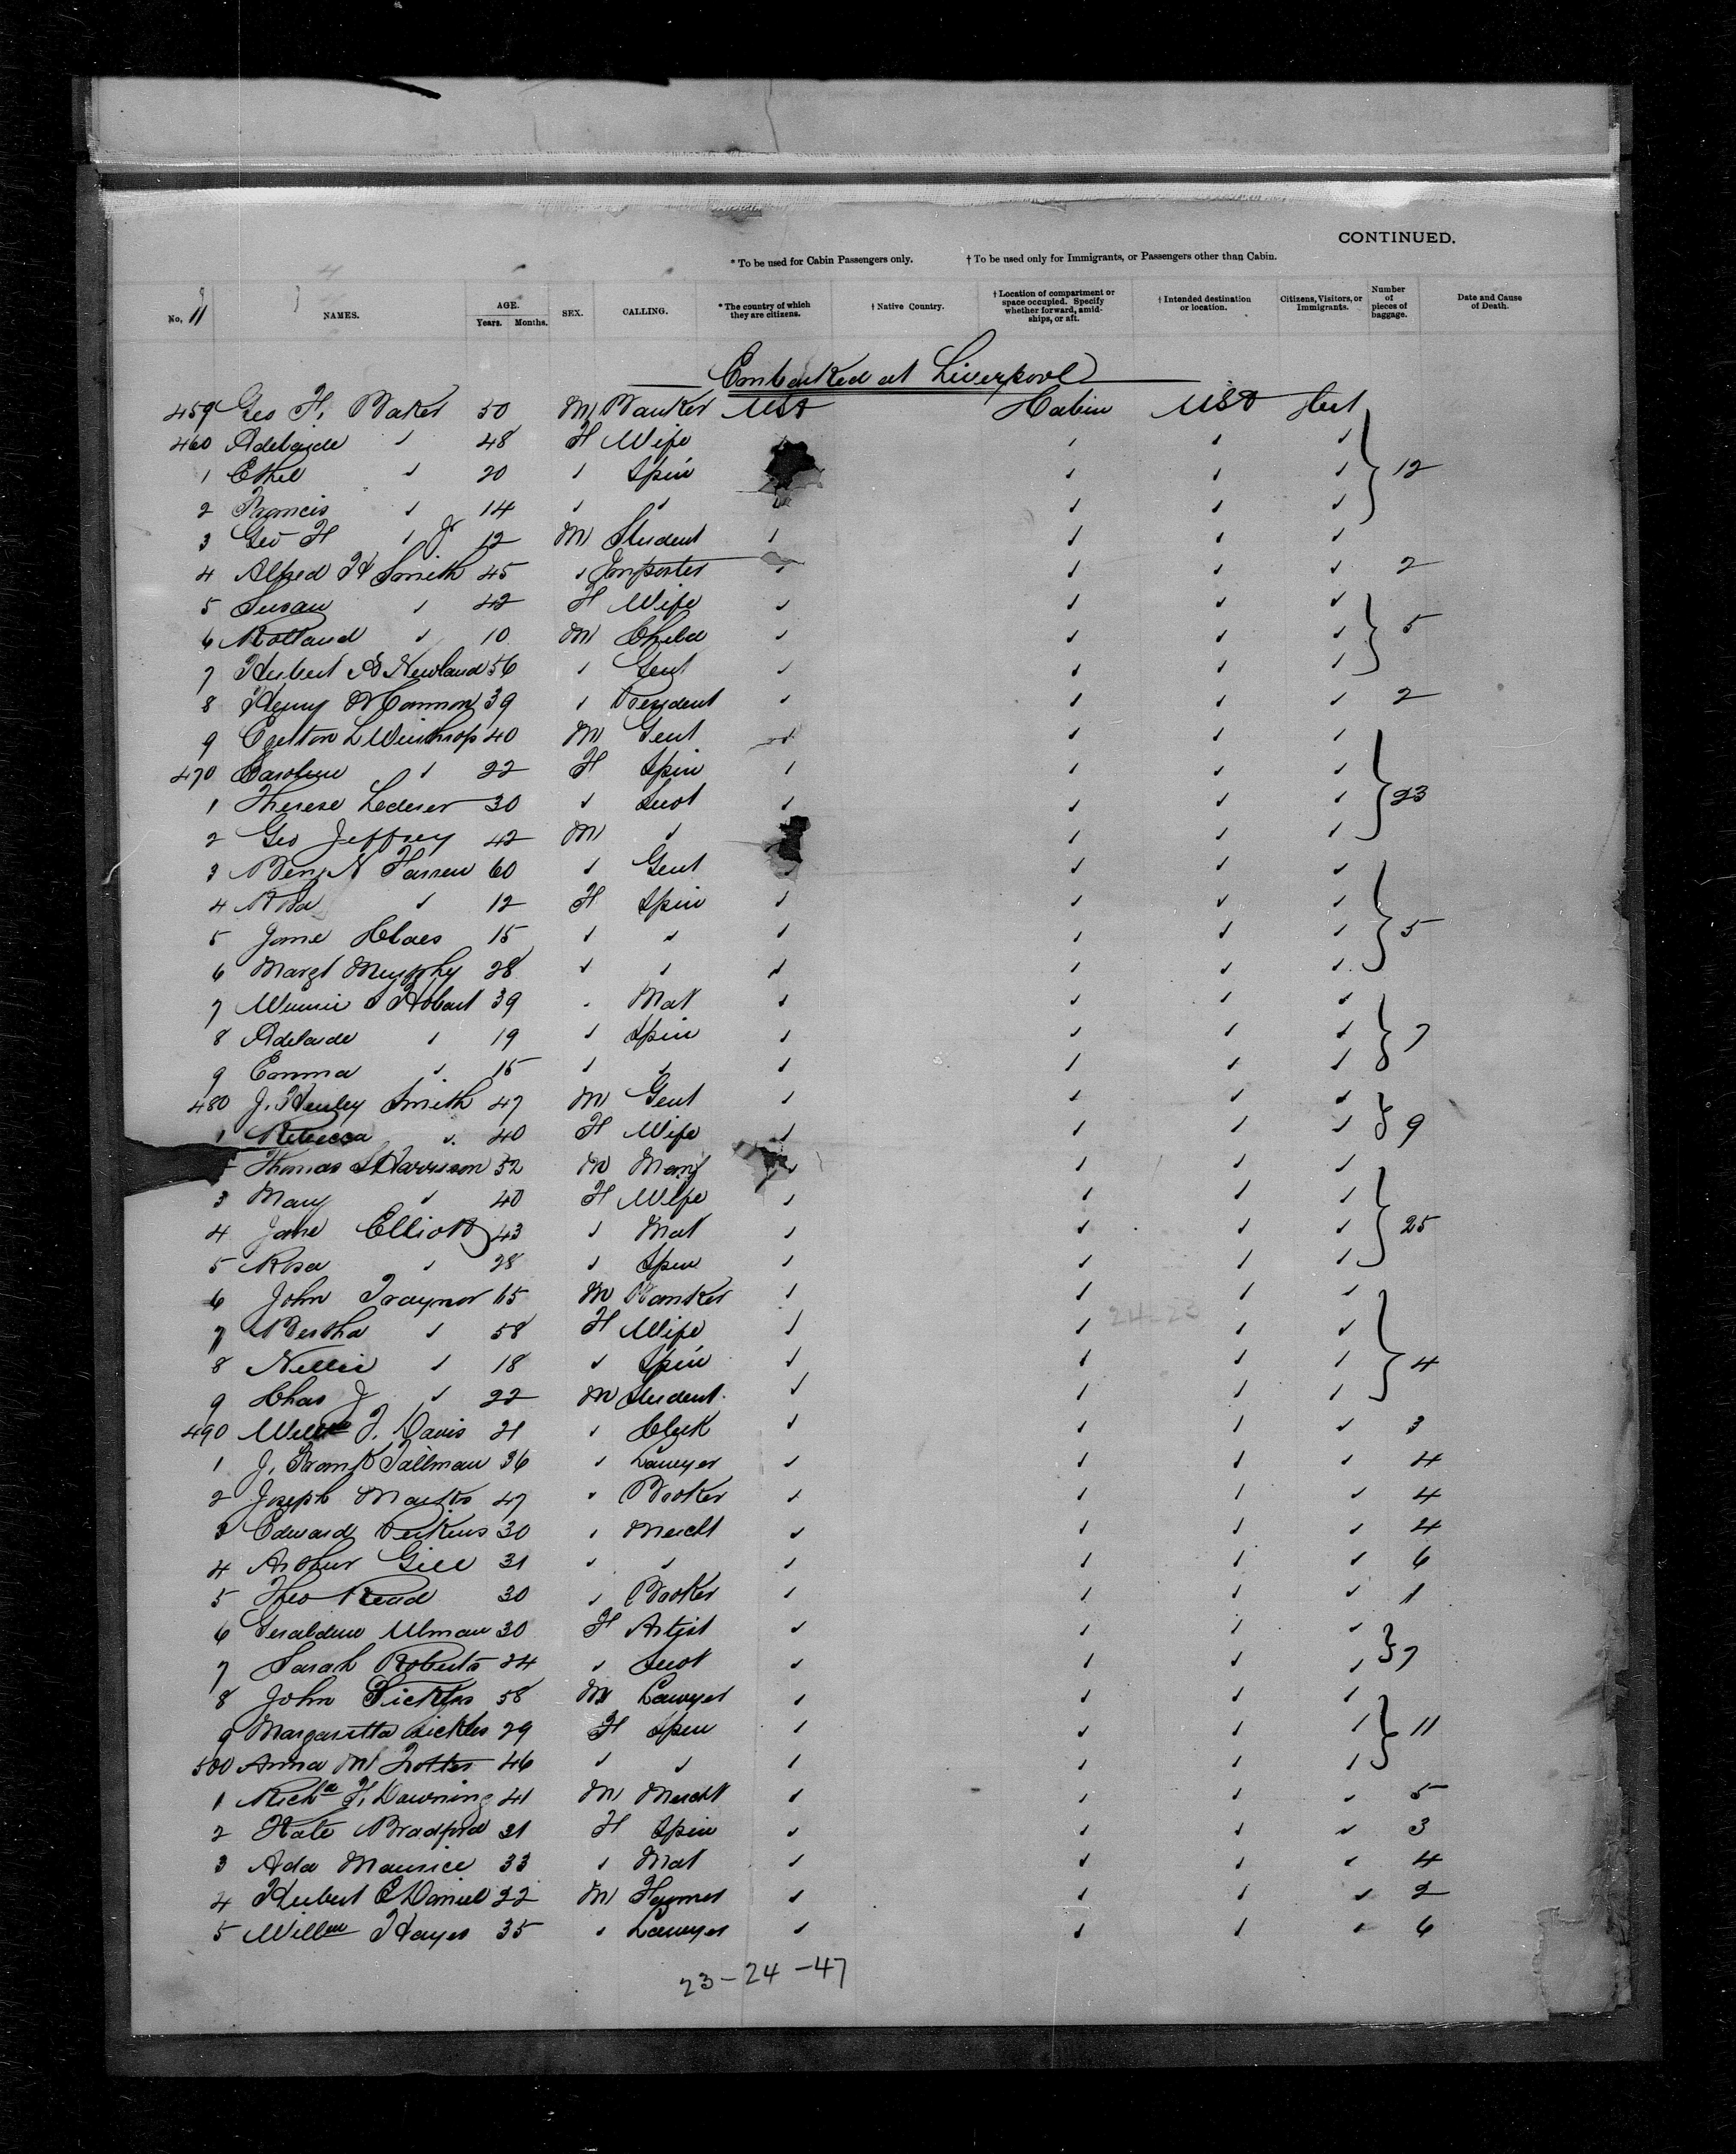 CONTINUED.
* To be used for Cabin Passengers only. † To be used only for Immigrants, or Passengers other than Cabin.
No. 11 NAMES. AGE. Years. Months. SEX. CALLING. * The country of which they are citizens. † Native Country. † Location of compartment or space occupied. Specify whether forward, amidships, or aft. † Intended destination or location. Citizens, Visitors, or Immigrants. Number of pieces of baggage. Date and Cause of Death.
Embarked at Liverpool
459 Geo H. Baker 50 M Banker USA Cabin USA
460 Adelaide ✓ 48 F Wife ✓ ✓ ✓
1 Ethel ✓ 20 ✓ Spin ✓ ✓ ✓ 12
2 Francis ✓ 14 ✓ ✓ ✓ ✓ ✓
3 Geo H ✓ Jr 12 M Student ✓ ✓ ✓ ✓
4 Alfred H Smith 45 ✓ Importer ✓ ✓ ✓ ✓ 2
5 Susan ✓ 42 F Wife ✓ ✓ ✓ ✓
6 Rolland ✓ 10 M Child ✓ ✓ ✓ ✓ 5
7 Hubert Newland 56 ✓ Gent ✓ ✓ ✓ ✓
8 Henry W Cannon 39 ✓ President ✓ ✓ ✓ ✓ 2
9 Egerton L Winthrop 40 M Gent ✓ ✓ ✓ ✓
470 Caroline ✓ 22 F Spin ✓ ✓ ✓ ✓
1 Therese Lederer 30 ✓ Servt ✓ ✓ ✓ ✓ 23
2 Geo Jeffrey 42 M ✓ ✓ ✓ ✓
3 Benj N Farren 60 ✓ Gent ✓ ✓ ✓ ✓
4 Rosa ✓ 12 F Spin ✓ ✓ ✓ ✓
5 Jane 15 ✓ ✓ ✓ ✓ ✓ ✓ 5
6 Margt Murphy 28 ✓ ✓ ✓ ✓ ✓ ✓
7 Minnie S Hobart 39 Mat ✓ ✓ ✓ ✓
8 Adelaide ✓ 19 ✓ Spin ✓ ✓ ✓ ✓ 7
9 Emma ✓ 15 ✓ ✓ ✓ ✓ ✓ ✓
480 J. Henley Smith 47 M Gent ✓ ✓ ✓ ✓
1 Rebecca ✓ 40 F Wife ✓ ✓ ✓ ✓ 9
Thomas S Harrison 52 M Manf ✓ ✓ ✓ ✓
3 Mary ✓ 40 F Wife ✓ ✓ ✓ ✓
4 Jane Elliott 43 ✓ Mat ✓ ✓ ✓ ✓ 25
5 Rosa ✓ 28 ✓ Spin ✓ ✓ ✓ ✓
6 John Traynor 65 M Banker ✓ ✓ ✓ ✓
24-23
7 Bertha ✓ 58 F Wife ✓ ✓ ✓ ✓
8 Nellie ✓ 18 ✓ Spin ✓ ✓ ✓ ✓ 4
9 Chas J ✓ 22 M Student ✓ ✓ ✓ ✓
490 Willm J. Davis 21 ✓ Clerk ✓ ✓ ✓ ✓ 3
1 J. Frank Tallman 36 ✓ Lawyer ✓ ✓ ✓ ✓ 4
2 Joseph 47 ✓ Broker ✓ ✓ ✓ ✓ 4
3 Edward Perkins 30 ✓ Mercht ✓ ✓ ✓ ✓ 4
4 Arthur Gill 31 ✓ ✓ ✓ ✓ ✓ ✓ 6
5 Theo Read 30 ✓ Broker ✓ ✓ ✓ ✓ 1
6 Geraldine Ulman 30 F Artist ✓ ✓ ✓ ✓
7 Sarah Roberts 24 ✓ Servt ✓ ✓ ✓ ✓ 7
8 John Sickles 58 M Lawyer ✓ ✓ ✓ ✓
9 Margaretta Sickles 29 F Spin ✓ ✓ ✓ ✓ 11
500 Anna M Trotter 46 ✓ ✓ ✓ ✓ ✓ ✓
1 Richd F. Downing 41 M Mercht ✓ ✓ ✓ ✓ 5
2 Kate Bradford 21 F Spin ✓ ✓ ✓ ✓ 3
3 Ada Maurice 33 ✓ Mat ✓ ✓ ✓ ✓ 4
4 Hubert E Daniel 22 M Farmer ✓ ✓ ✓ ✓ 2
5 Willm Hayes 35 ✓ Lawyer ✓ ✓ ✓ ✓ 6
23-24-47